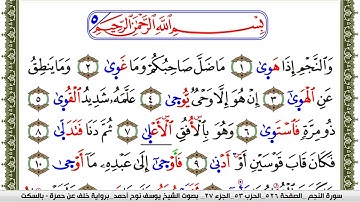 بِسْمِ اللَّهِ الرَّحْمَٰنِ الرَّحِيمِ
٥
وَالنَّجْمِ إِذَا هَوَىٰ ١ مَا ضَلَّ صَاحِبُكُمْ وَمَا غَوَىٰ ٢ وَمَا يَنطِقُ
عَنِ الْهَوَىٰ ٣ إِنْ هُوَ إِلَّا وَحْيٌ يُوحَىٰ ٤ عَلَّمَهُ شَدِيدُ الْقُوَىٰ ٥
ذُو مِرَّةٍ فَاسْتَوَىٰ ٦ وَهُوَ بِالْأُفُقِ الْأَعْلَىٰ ٧ ثُمَّ دَنَا فَتَدَلَّىٰ ٨
فَكَانَ قَابَ قَوْسَيْنِ أَوْ أَدْنَىٰ ٩ فَأَوْحَىٰ إِلَىٰ عَبْدِهِ مَا أَوْحَىٰ ١٠
سورة النجم _ الصفحة ٥٢٦ _ الحزب ٥٣ _ الجزء ٢٧ _ بصوت الشيخ يوسف نوح أحمد _ برواية خلف عن حمزة - بالسكت